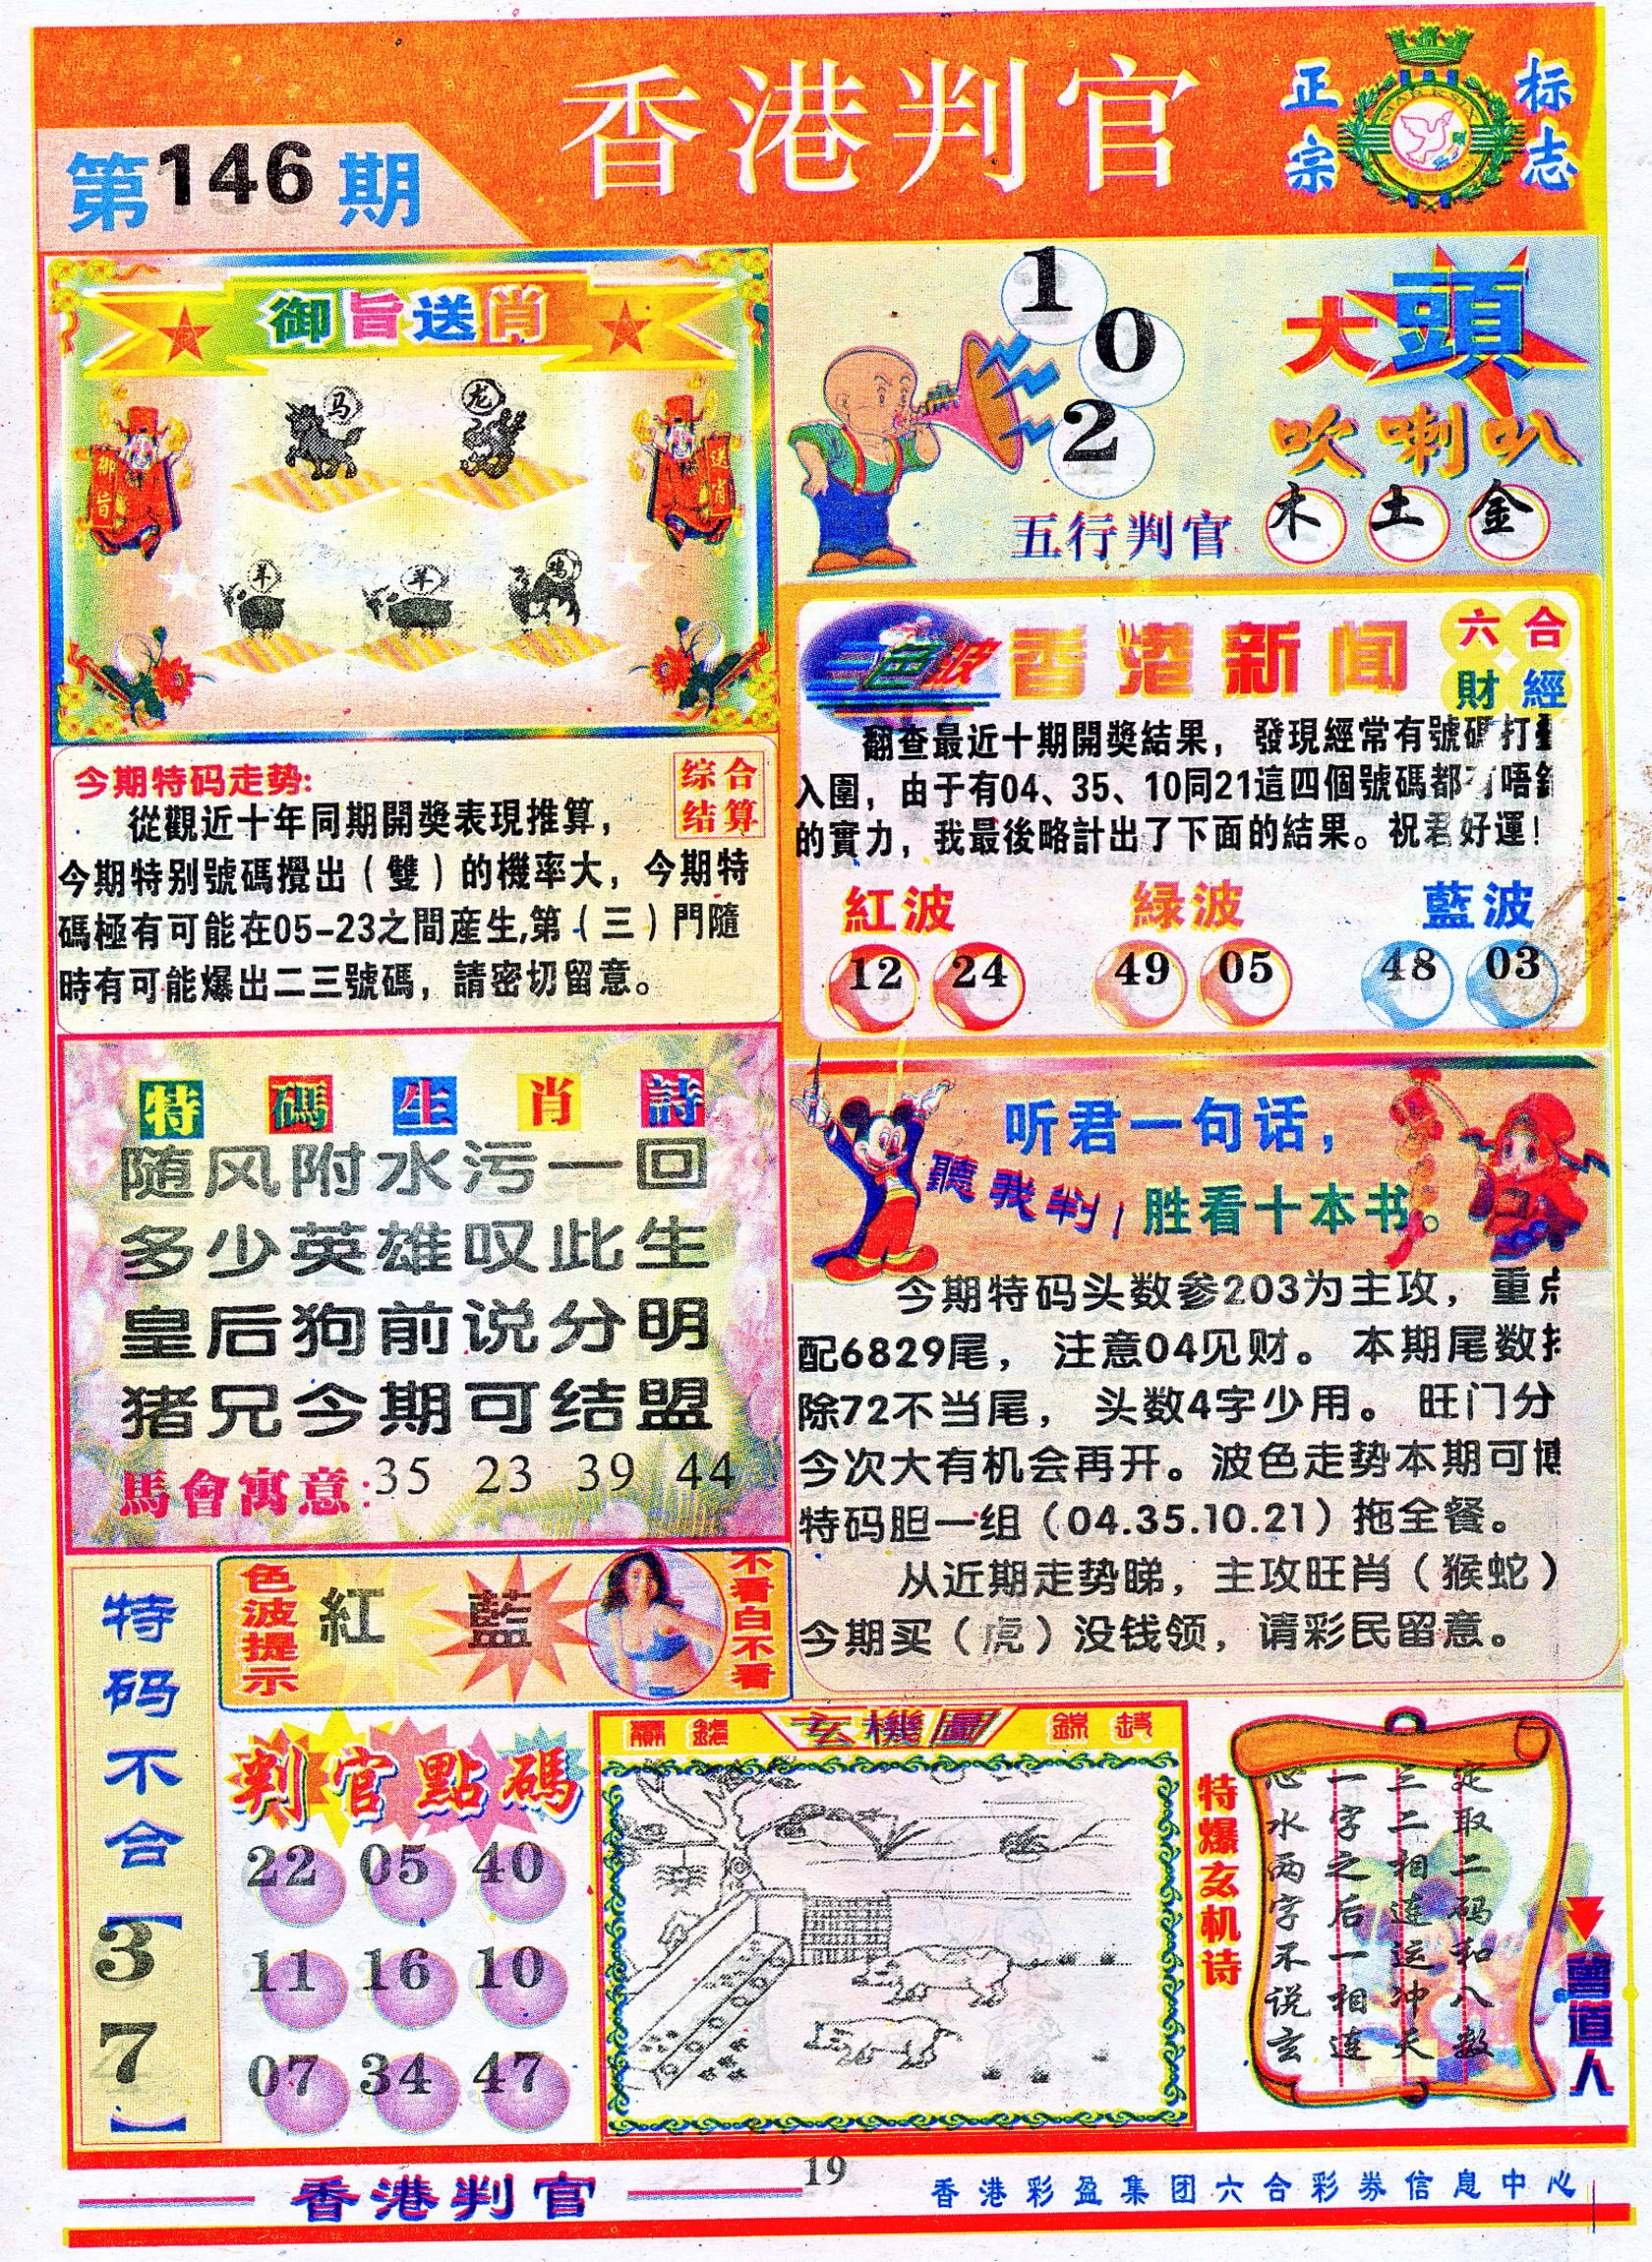 香港判官
正宗
标志
第146期
御旨送肖
马
龙
御旨
送肖
羊
羊
鸡
1
0
2
大頭
吹喇叭
五行判官
木 土 金
三色波
香港新闻
六合
財經
翻查最近十期開獎結果，發現經常有號碼打
入圍，由于有04、35、10同21這四個號碼都有唔
的實力，我最後略計出了下面的結果。祝君好運！
紅波 緑波 藍波
12 24 49 05 48 03
今期特码走势:
综合
结算
從觀近十年同期開獎表現推算，
今期特别號碼攪出（雙）的機率大，今期特
碼極有可能在05-23之間産生,第（三）門隨
時有可能爆出二三號碼，請密切留意。
特碼生肖詩
随风附水污一回
多少英雄叹此生
皇后狗前说分明
猪兄今期可结盟
馬會寓意:35 23 39 44
听君一句话，
聽我判！
胜看十本书。
今期特码头数参203为主攻，重点
配6829尾，注意04见财。本期尾数
除72不当尾，头数4字少用。旺门分
今次大有机会再开。波色走势本期可博
特码胆一组（04.35.10.21）拖全餐。
从近期走势睇，主攻旺肖（猴蛇）
今期买（虎）没钱领，请彩民留意。
特码不合【37】
色波提示
紅 藍
不看白不看
判官點碼
22 05 40
11 16 10
07 34 47
玄機圖
特爆玄机诗
心水两字不说玄
一字之后一相连
三二相连运冲天
定取二码和八数
曾道人
香港判官
19
香港彩盈集团六合彩券信息中心